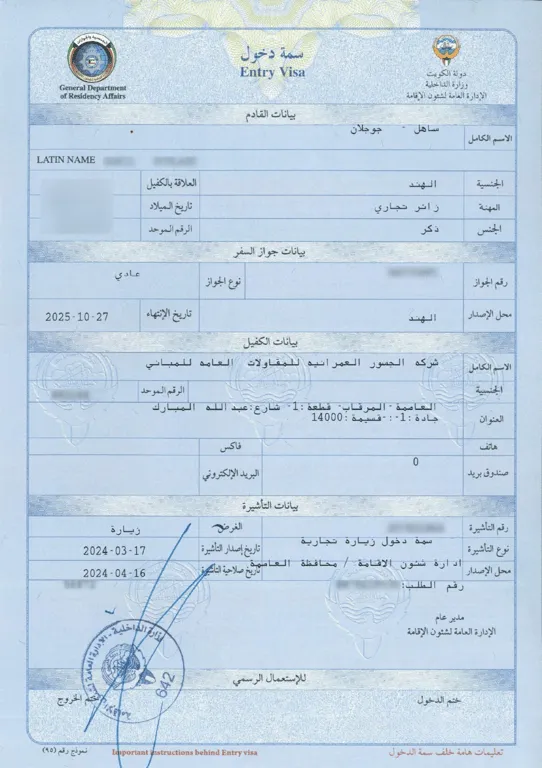 سمة دخول
Entry Visa
General Department
of Residency Affairs
دولة الكويت
وزارة الداخلية
الإدارة العامة لشئون الإقامة
بيانات القادم
الاسم الكامل ساهل - جوجلان
LATIN NAME
الجنسية الهند العلاقة بالكفيل
المهنة زائر تجاري تاريخ الميلاد
الجنس ذكر الرقم الموحد
بيانات جواز السفر
رقم الجواز نوع الجواز عادي
محل الإصدار الهند تاريخ الإنتهاء 2025-10-27
بيانات الكفيل
الاسم الكامل شركه الجسور العمرانيه للمقاولات العامه للمباني
الجنسية الرقم الموحد
العنوان العاصمة-المرقاب- قطعة:1- شارع:عبدالله المبارك
جادة:1-:-قسيمة:14000
هاتف فاكس
صندوق بريد 0 البريد الإلكتروني
بيانات التأشيرة
رقم التأشيرة الغرض زيارة
نوع التأشيرة سمة دخول زيارة تجارية تاريخ إصدار التأشيرة 2024-03-17
محل الإصدار إدارة شئون الاقامة / محافظة العاصمة تاريخ صلاحية التأشيرة 2024-04-16
رقم الطلب:
مدير عام
الإدارة العامة لشئون الإقامة
وزارة الداخلية - الإدارة العامة
642
للإستعمال الرسمي
ختم الدخول ختم الخروج
تعليمات هامة خلف سمة الدخول Important instructions behind Entry visa نموذج رقم (٩٥)